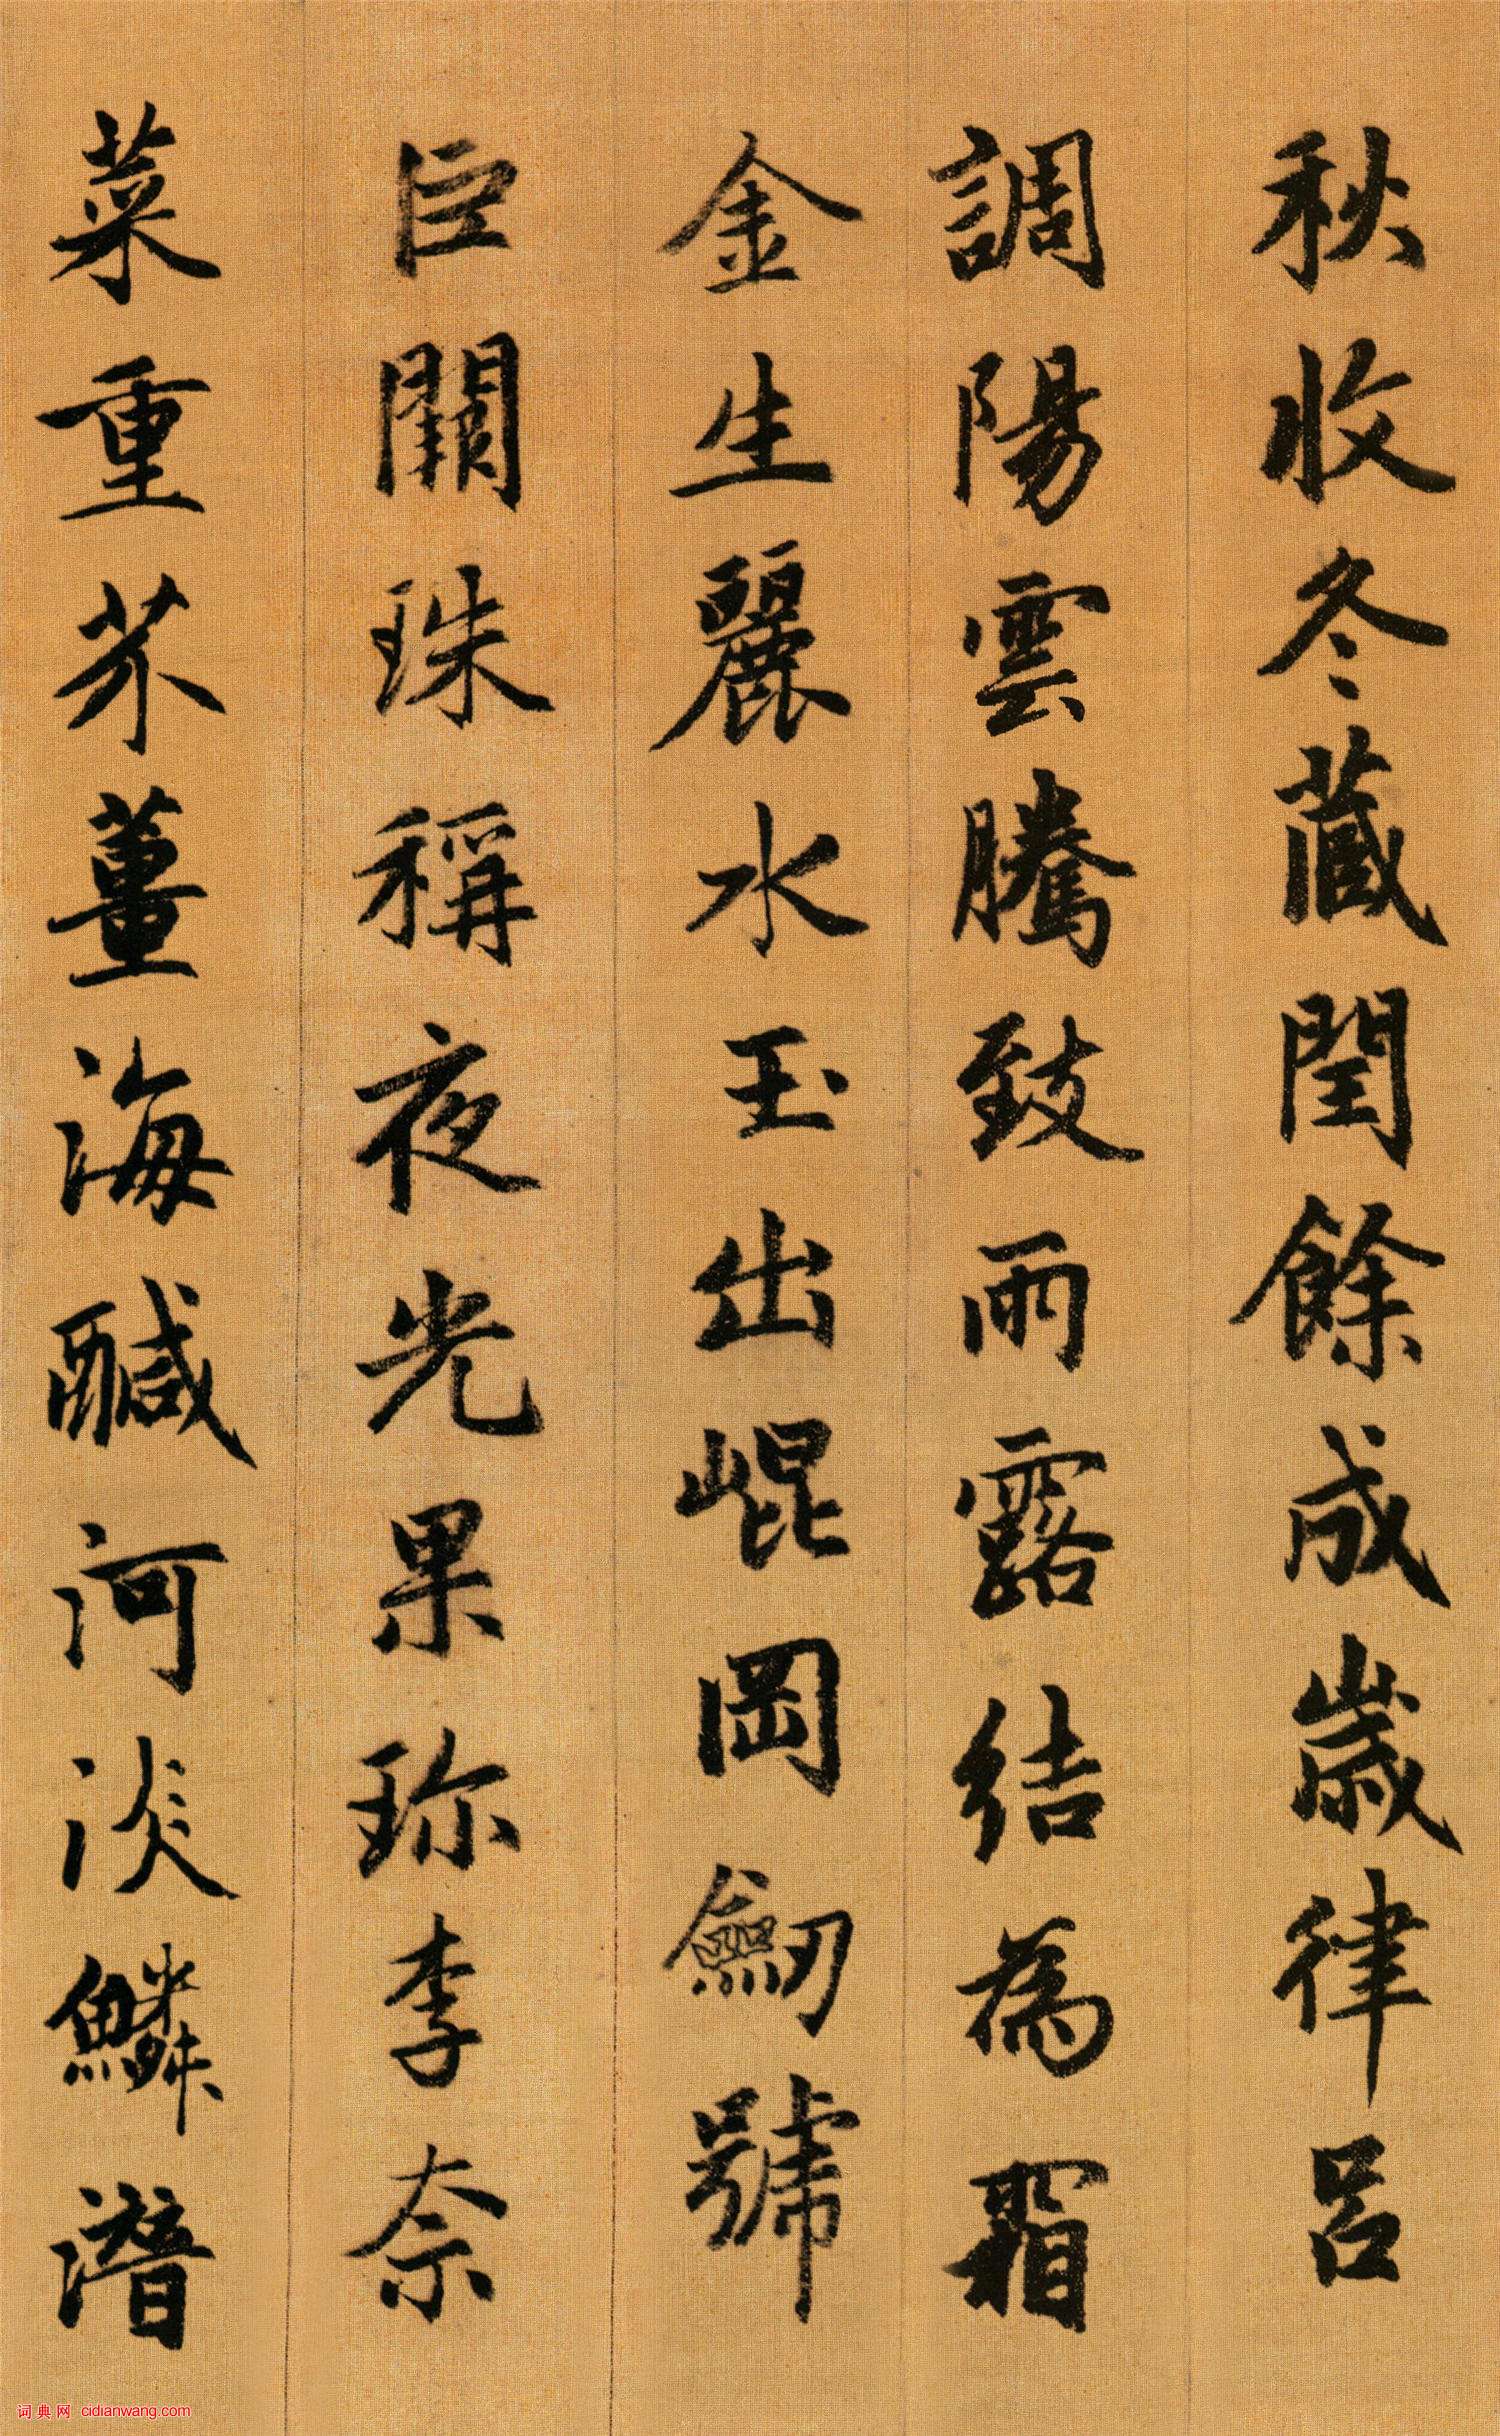 秋收冬蔵閏餘成歲律呂
調陽雲騰致雨露結為霜
金生麗水玉出崐岡劒號
巨闕珠稱夜光果珎李柰
菜重芥薑海鹹河淡鱗潛
词典网 cidianwang.com